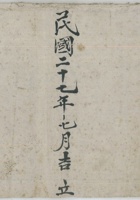 民國二十七年七月吉立